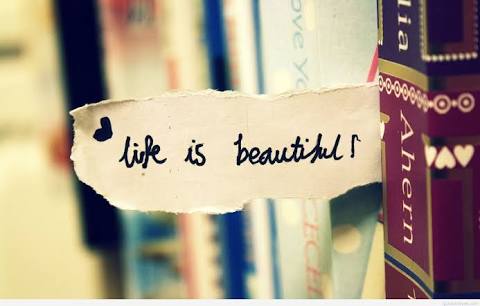 life is beautiful!
love Yo
lia
Ahern
CECE